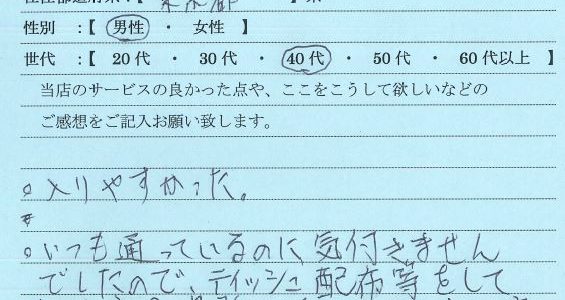 東京都
性別 ：【 男性 ・ 女性 】
世代 ：【 20代 ・ 30代 ・ 40代 ・ 50代 ・ 60代以上 】
当店のサービスの良かった点や、ここをこうして欲しいなどの
ご感想をご記入お願い致します。
○入りやすかった。
○いつも通っているのに気付きません
でしたので、ティッシュ配布等をして